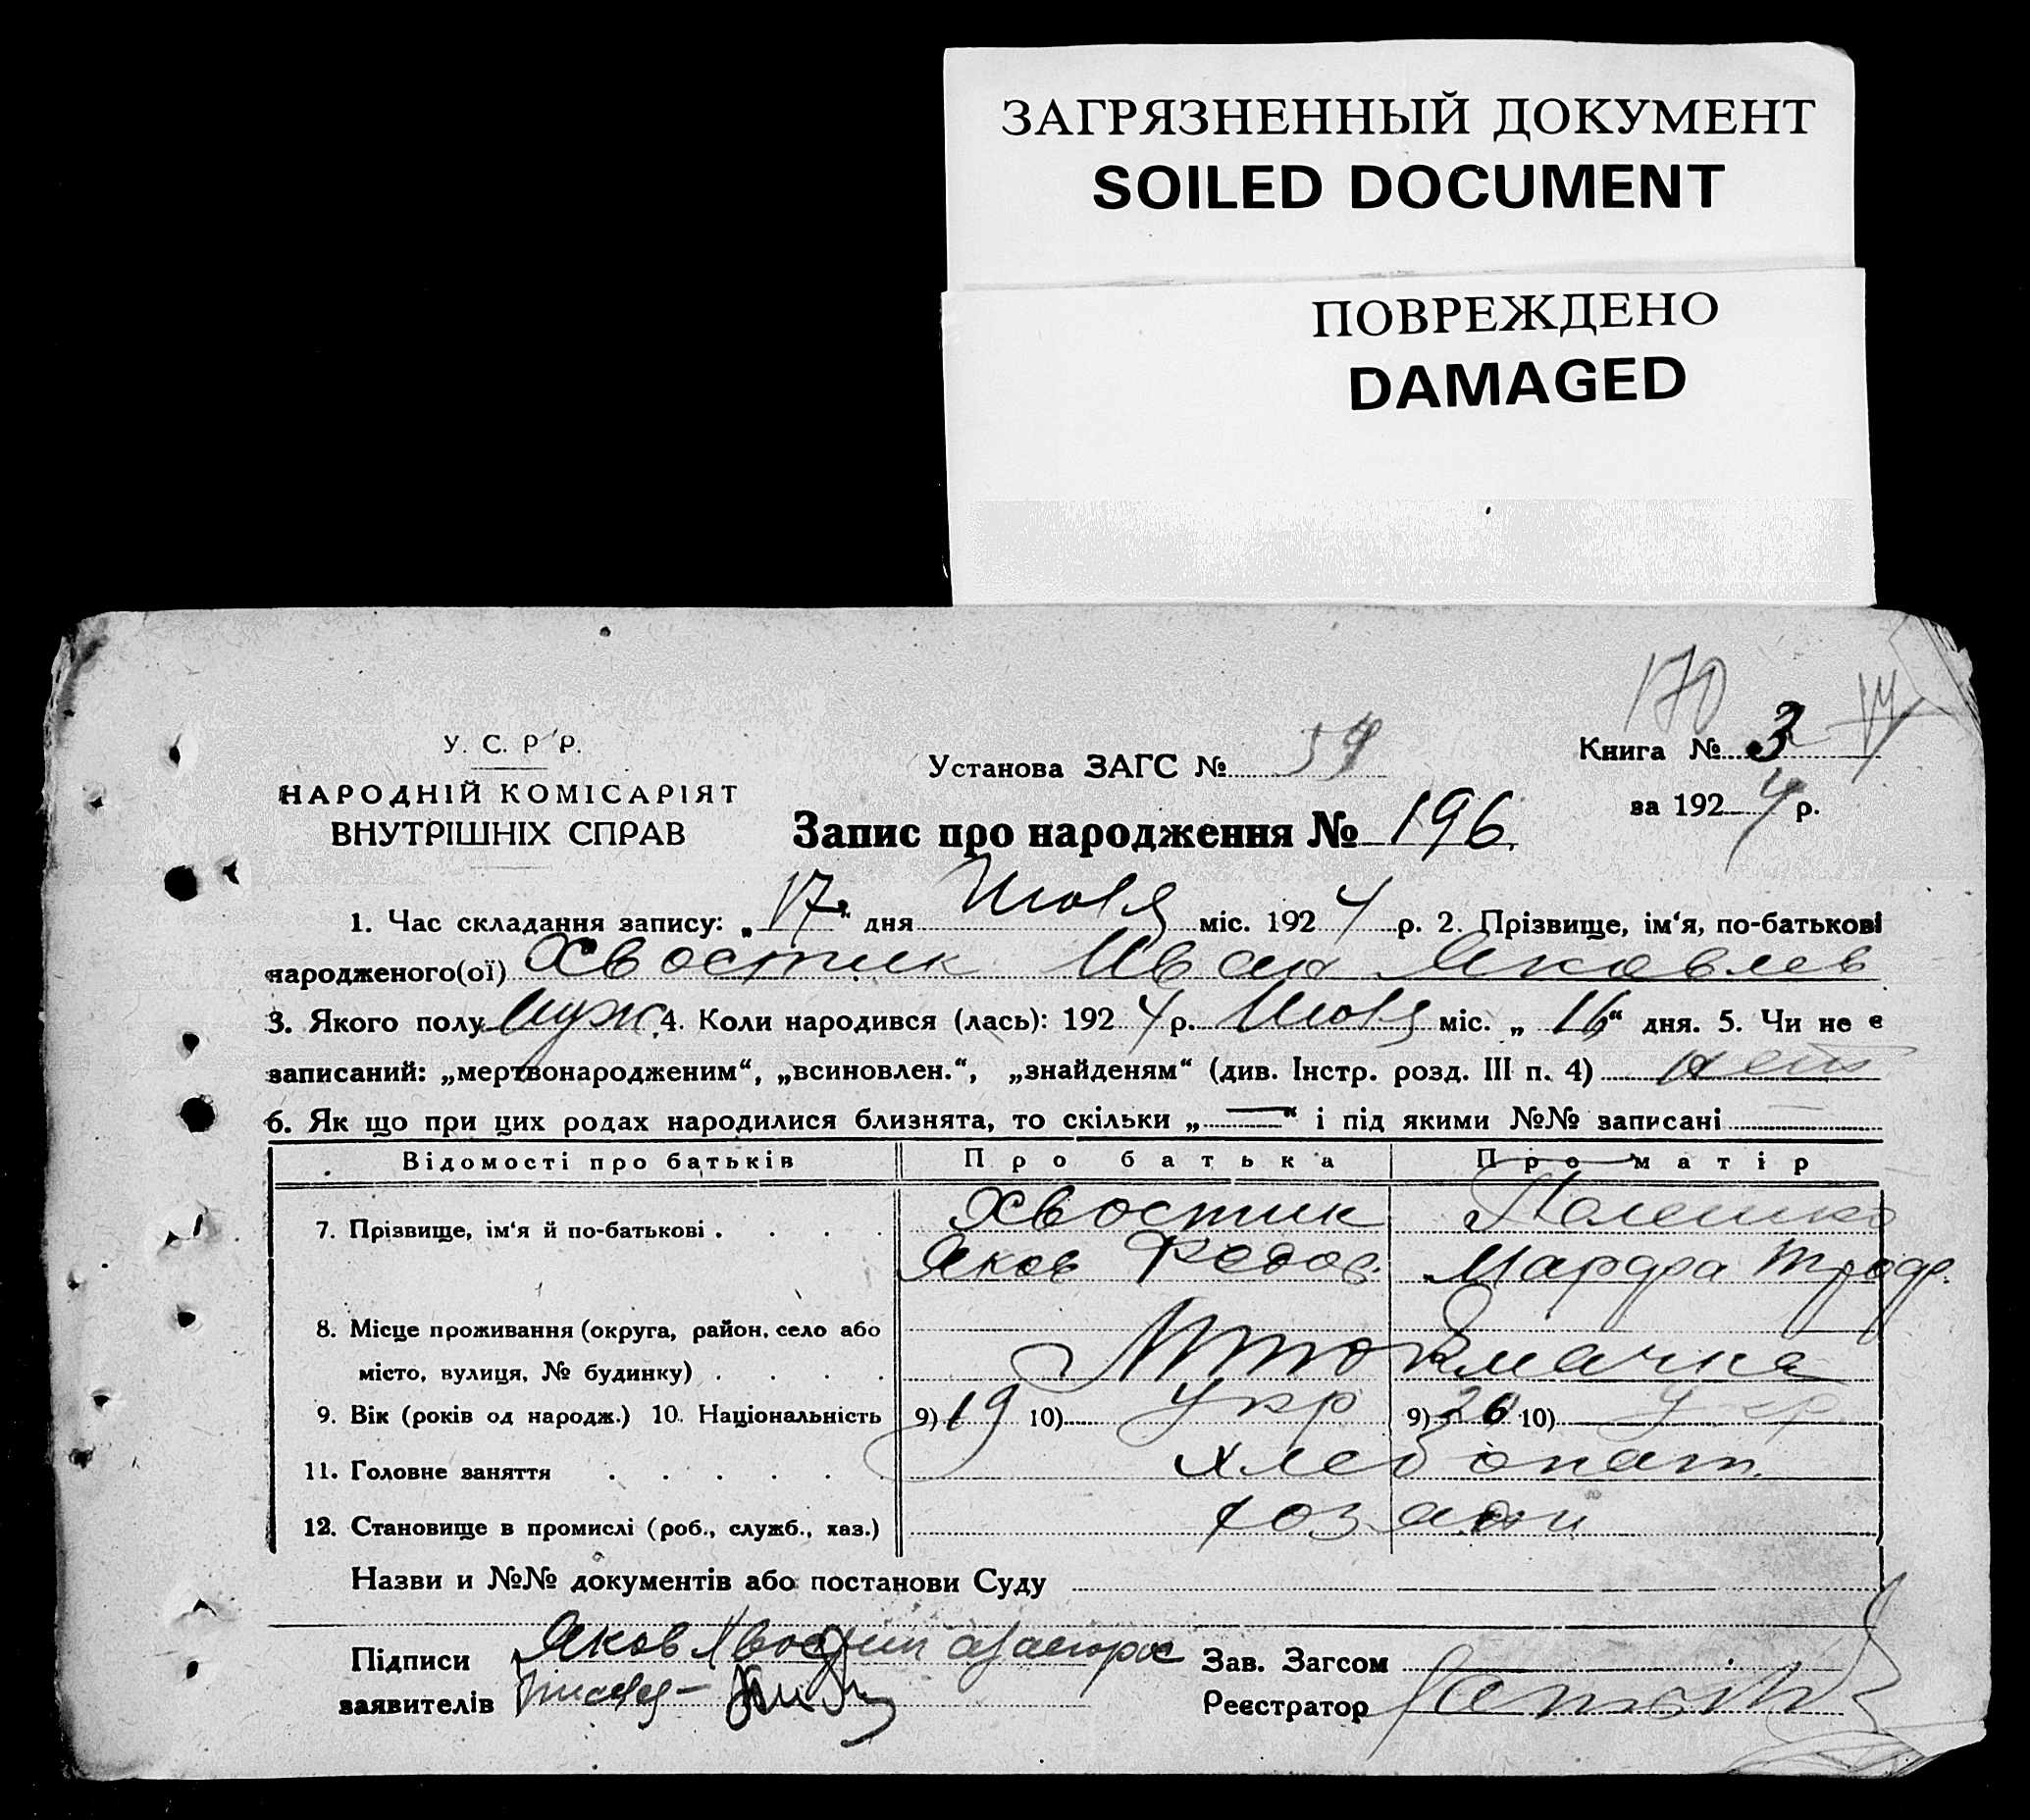 ЗАГРЯЗНЕННЫЙ ДОКУМЕНТ
SOILED DOCUMENT
ПОВРЕЖДЕНО
DAMAGED
170
У. С. Р Р.
НАРОДНІЙ КОМІСАРІЯТ
ВНУТРІШНІХ СПРАВ
Установа ЗАГС № 54
Книга № 3
за 1924 р.
Запис про народження № 196.
1. Час складання запису: „17“ дня Июля міс. 1924 р. 2. Прізвище, ім‘я, по-батькові
народженого(ої) Хвостик Иван Яковлев
3. Якого полу муж. 4. Коли народився (лась): 1924 р. Июля міс. „16“ дня. 5. Чи не є
записаний: „мертвонародженим“, „всиновлен.“, „знайденям“ (див. Інстр. розд. III п. 4) нет
6. Як що при цих родах народилися близнята, то скільки „—“ і під якими №№ записані
Відомості про батьків Про батька Про матір
7. Прізвище, ім‘я й по-батькові . . . . Хвостик
Яков Федов. Марфа
8. Місце проживання (округа, район, село або
місто, вулиця, № будинку) . . . .
9. Вік (років од народж.) 10. Національність 9) 19 10) Укр 9) 26 10) Укр
11. Головне заняття . . . . . хлебопаш.
12. Становище в промислі (роб., служб., хаз.)
Назви и №№ документів або постанови Суду
Підписи Яков
заявителів
Зав. Загсом
Реєстратор